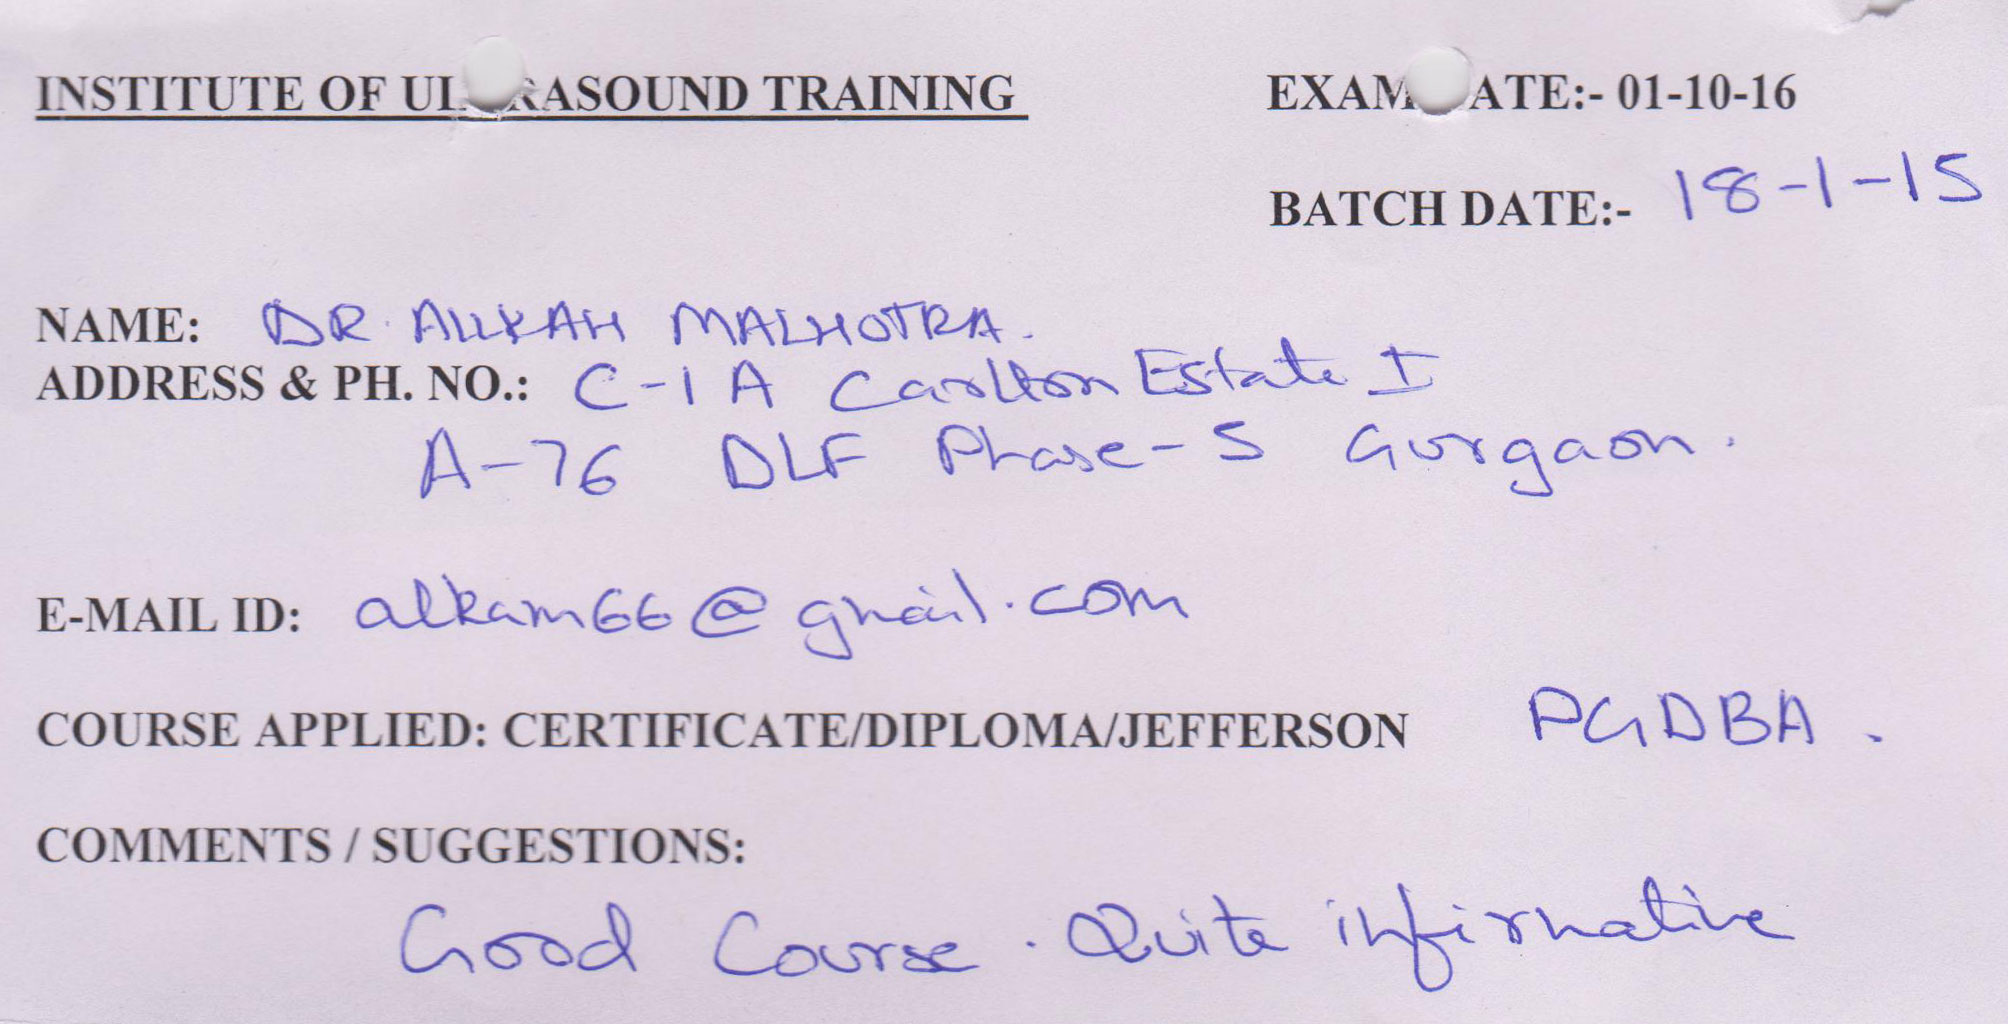 INSTITUTE OF ULTRASOUND TRAINING EXAM DATE:- 01-10-16
BATCH DATE:- 18-1-15
NAME: DR. ALKAH MALHOTRA.
ADDRESS & PH. NO.: C-1A Carlton Estate I
A-76 DLF Phase-5 Gurgaon.
E-MAIL ID: alkam66@gmail.com
COURSE APPLIED: CERTIFICATE/DIPLOMA/JEFFERSON PGDBA.
COMMENTS / SUGGESTIONS:
Good Course. Quite informative